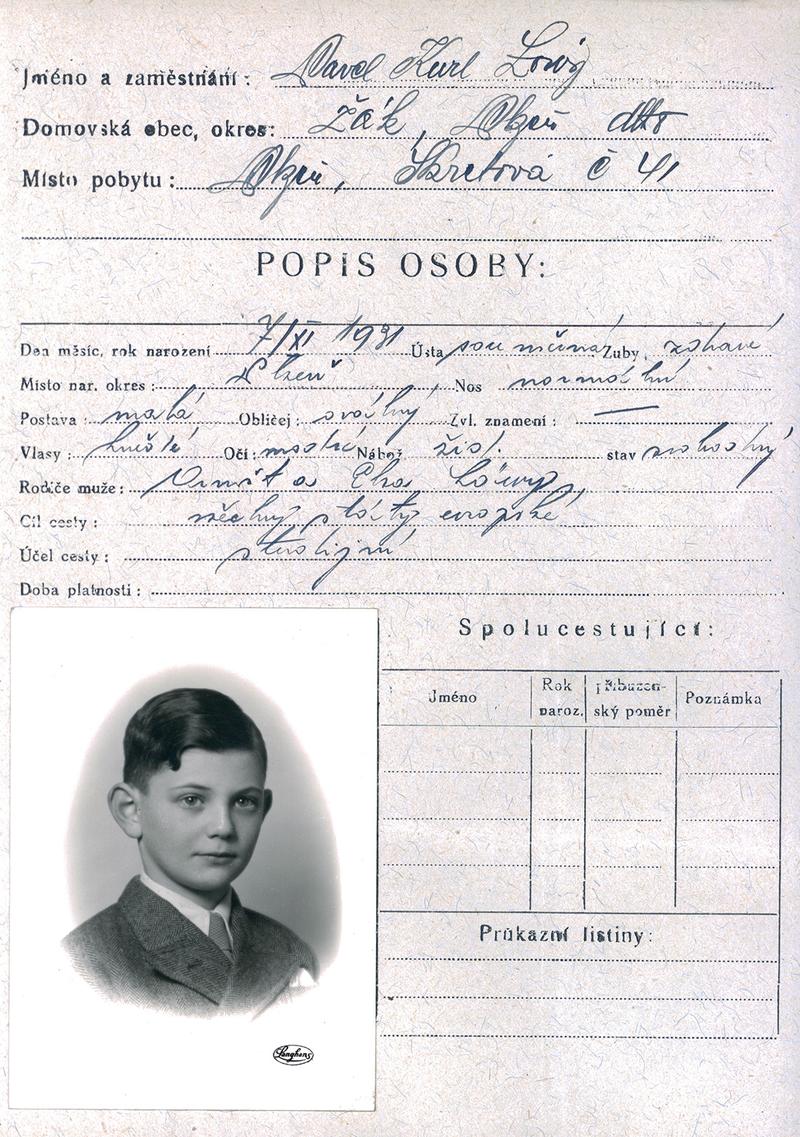 Jméno a zaměstnání: Pavel Karl Löwy
Domovská obec, okres: žák, Plzeň dtto
Místo pobytu: Plzeň, Škretová č 41
POPIS OSOBY:
Den měsíc, rok narození 7/XI 1931 Ústa souměrná Zuby, zdravé
Místo nar. okres: Plzeň Nos normální
Postava: malá Obličej: oválný Zvl. znamení: —
Vlasy: hnědé Oči: modré Nábož žid. stav svobodný
Rodiče muže: Arnošt a Elsa Löwy
Cíl cesty: všechny státy evropské
Účel cesty: studijní
Doba platnosti:
Spolucestující:
Jméno Rok naroz. příbuzenský poměr Poznámka
Průkazní listiny:
Langhans